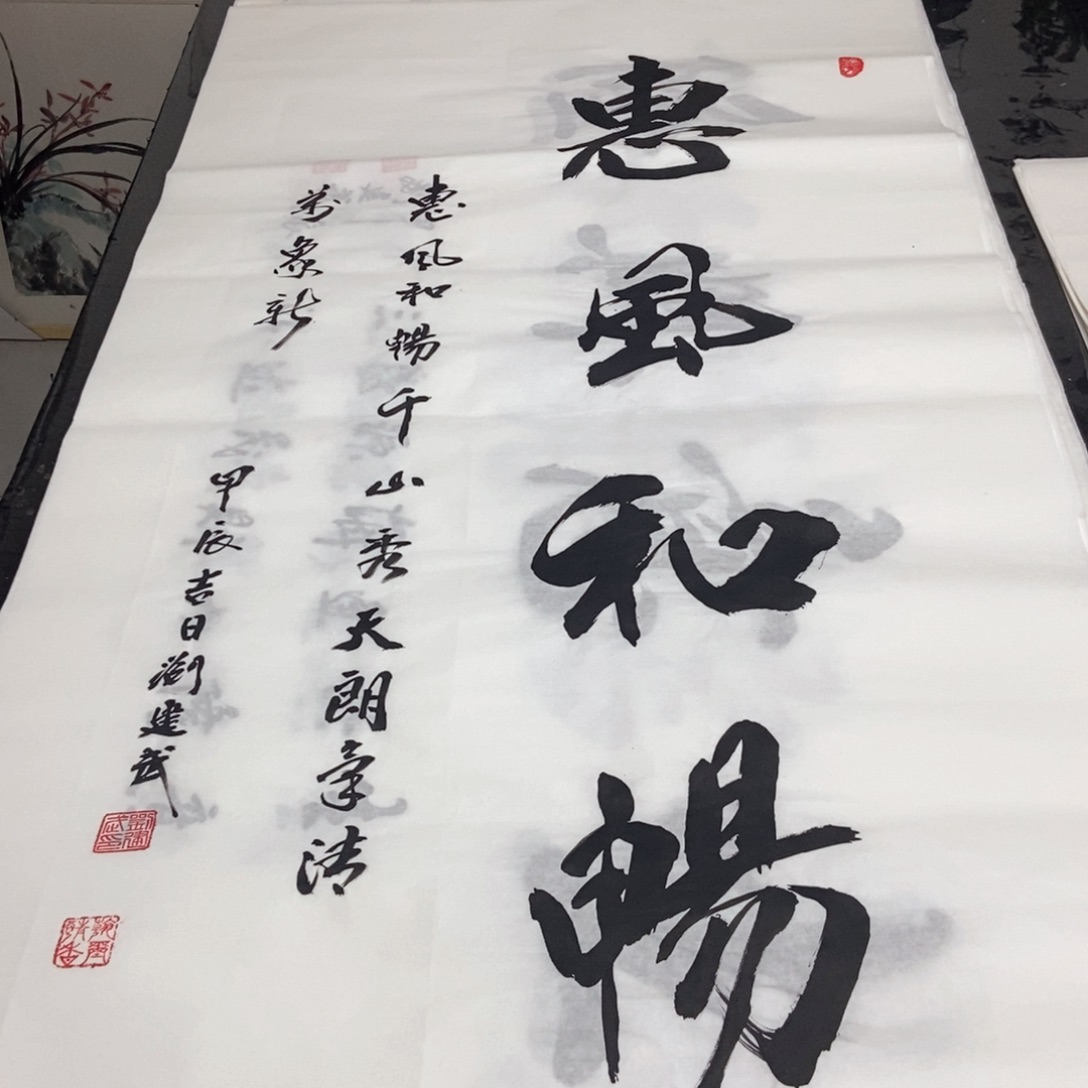 惠風和暢
惠風和暢千山秀天朗氣清
萬象新
甲辰吉日劉建武
劉建武印